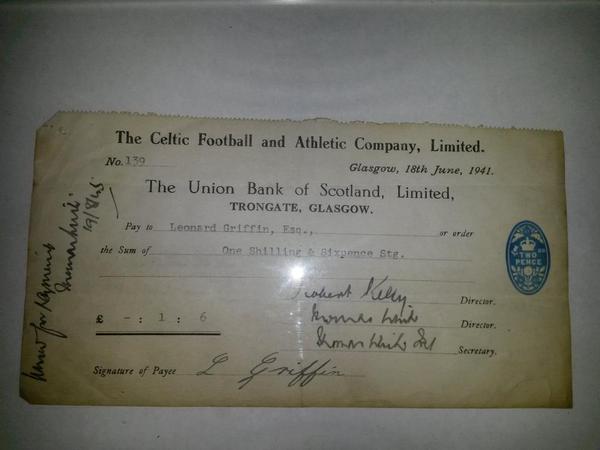 The Celtic Football and Athletic Company, Limited.
No. 139
Glasgow, 18th June, 1941.
The Union Bank of Scotland, Limited,
TRONGATE, GLASGOW.
Pay to Leonard Griffin, Esq., or order
the Sum of One Shilling & Sixpence Stg.
TWO
PENCE
Robert Kelly Director.
£ - : 1 : 6
Thomas White Director.
Thomas White Secretary.
Signature of Payee L Griffin
for Payment
Thomas White
19/8/45